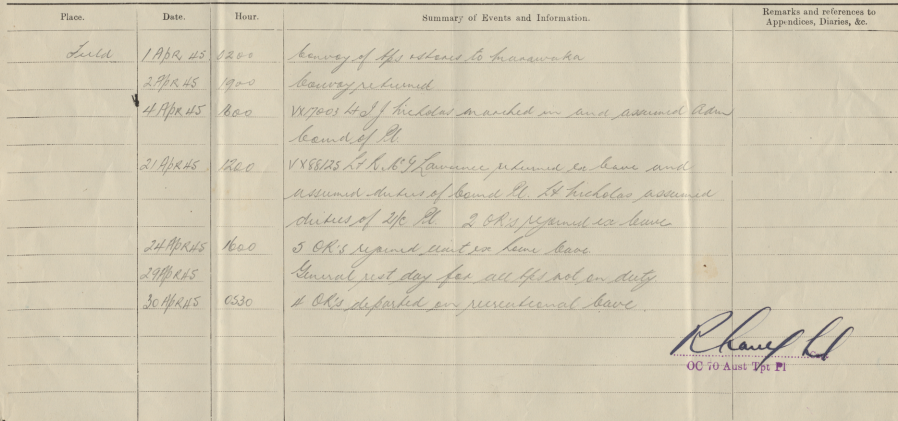 Place. Date. Hour. Summary of Events and Information. Remarks and references to
Appendices, Diaries, &c.
Field 1 Apr 45 0200 Convoy of tps & stores to Marawaka
2 Apr 45 1900 Convoy returned
4 Apr 45 1600 VX17003 Lt J J Nicholas marched in and assumed Adm
Comd of Pl.
21 Apr 45 1200 VX88125 Lt R. McG Lawrence returned ex leave and
assumed duties of Comd Pl. Lt Nicholas assumed
duties of 2i/c Pl. 2 OR's rejoined ex leave
24 Apr 45 1600 5 OR's rejoined unit ex home leave
29 Apr 45 General rest day for all tps not on duty
30 Apr 45 0530 4 OR's departed on recreational leave.
OC 70 Aust Tpt Pl